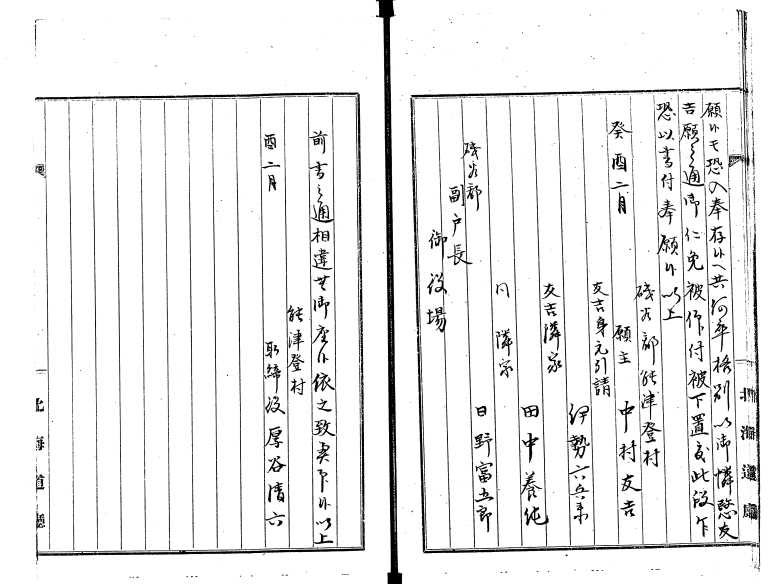 願候モ恐入奉存候ヘ共何卒格別以御憐愍友
吉願之通御仁免被仰付被下置度此段乍
恐以書付奉願候以上
磯谷郡能津登村
癸酉二月
願主 中村友吉
友吉身元引請
伊勢六兵衛
友吉隣家
田中養純
同 隣家
日野富五郎
磯谷郡
副戸長
御役場
北海道廳
前書之通相違無御座候依之致奥印候以上
能津登村
酉二月
取締役 厚谷清六
北海道廳